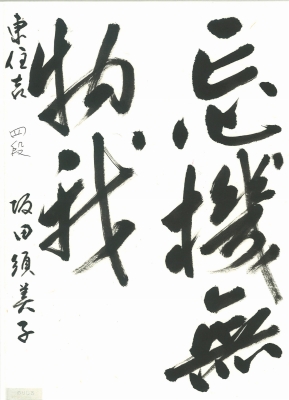 忘機無
物我
東住吉 四段 坂田須美子